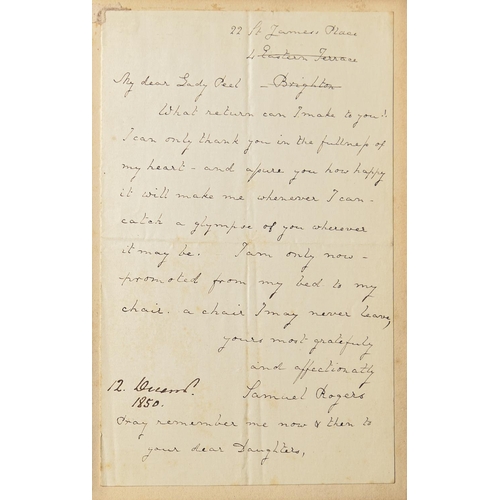 22 St James's Place
4 Eastern Terrace
My dear Lady Peel - Brighton
What return can I make to you?
I can only thank you in the fullness of
my heart - and assure you how happy
it will make me whenever I can -
catch a glympse of you wherever
it may be. I am only now -
-promoted from my bed to my
chair. a chair I may never leave,
yours most gratefuly
and affectionatly
Samuel Rogers
12. Decemr.
1850.
pray remember me now & then to
your dear Daughters,